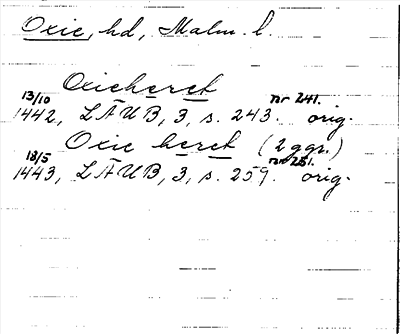 Oxie, hd, Malm. l.
Oxieheret
13/10 nr 241.
1442, LÄUB, 3, s. 243. orig.
Oxie heret (2 ggr.)
18/5 nr 251.
1443, LÄUB, 3, s. 259. orig.